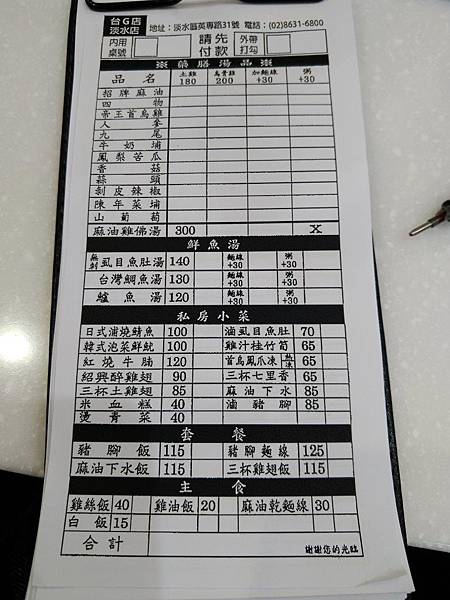 台G店 淡水店 地址：淡水區英專路31號 電話：(02)8631-6800
內用桌號 請先付款 外帶打勾
※藥膳湯品※
品名 土雞180 烏骨雞200 加麵線+30 粥+30
招牌麻油
四物
帝王首烏雞
人蔘
九尾
牛奶埔
鳳梨苦瓜
香菇
蒜頭
剝皮辣椒
陳年菜埔
山葡萄
麻油雞佛湯 300 X
鮮魚湯
無刺虱目魚肚湯 140 麵線+30 粥+30
台灣鯛魚湯 130 麵線+30 粥+30
鱸魚湯 120 麵線+30 粥+30
私房小菜
日式蒲燒鯖魚 100 滷虱目魚肚 70
韓式泡菜鮮魷 100 雞汁桂竹筍 65
紅燒牛腩 120 首烏鳳爪凍 65
紹興醉雞翅 90 三杯七里香 65
三杯土雞翅 85 麻油下水 85
米血糕 40 滷豬腳 85
燙青菜 40
套餐
豬腳飯 115 豬腳麵線 125
麻油下水飯 115 三杯雞翅飯 115
主食
雞絲飯 40 雞油飯 20 麻油乾麵線 30
白飯 15
合計 謝謝您的光臨